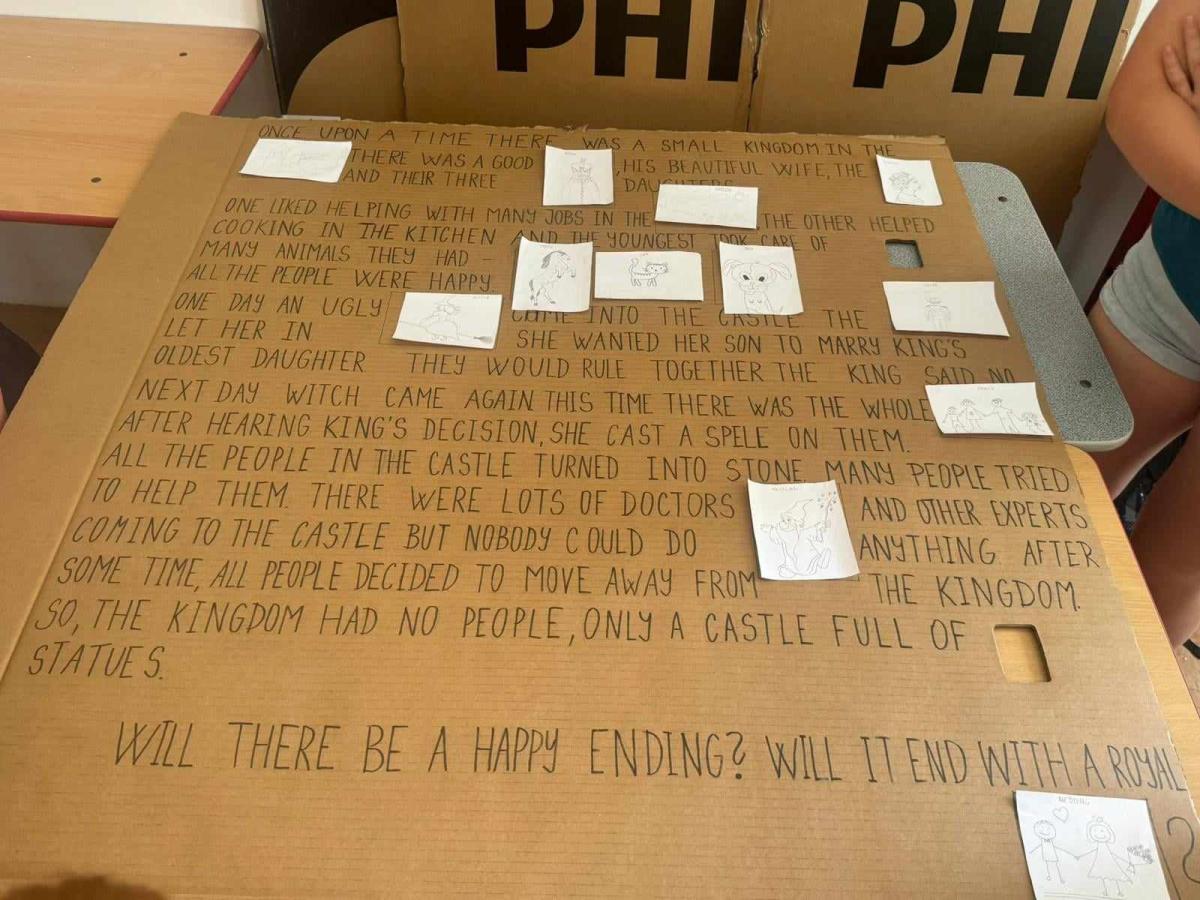 PHI PHI
ONCE UPON A TIME THERE WAS A SMALL KINGDOM IN THE
THERE WAS A GOOD ,HIS BEAUTIFUL WIFE, THE
AND THEIR THREE DAUGHTERS
ONE LIKED HELPING WITH MANY JOBS IN THE THE OTHER HELPED
COOKING IN THE KITCHEN AND THE YOUNGEST TOOK CARE OF
MANY ANIMALS THEY HAD -
ALL THE PEOPLE WERE HAPPY.
ONE DAY AN UGLY CAME INTO THE CASTLE THE
LET HER IN SHE WANTED HER SON TO MARRY KING'S
OLDEST DAUGHTER THEY WOULD RULE TOGETHER THE KING SAID NO
NEXT DAY WITCH CAME AGAIN THIS TIME THERE WAS THE WHOLE
AFTER HEARING KING'S DECISION, SHE CAST A SPELE ON THEM.
ALL THE PEOPLE IN THE CASTLE TURNED INTO STONE MANY PEOPLE TRIED
TO HELP THEM. THERE WERE LOTS OF DOCTORS AND OTHER EXPERTS
COMING TO THE CASTLE BUT NOBODY COULD DO ANYTHING AFTER
SOME TIME, ALL PEOPLE DECIDED TO MOVE AWAY FROM THE KINGDOM.
SO, THE KINGDOM HAD NO PEOPLE, ONLY A CASTLE FULL OF
STATUES.
WILL THERE BE A HAPPY ENDING? WILL IT END WITH A ROYAL
WEDDING
?